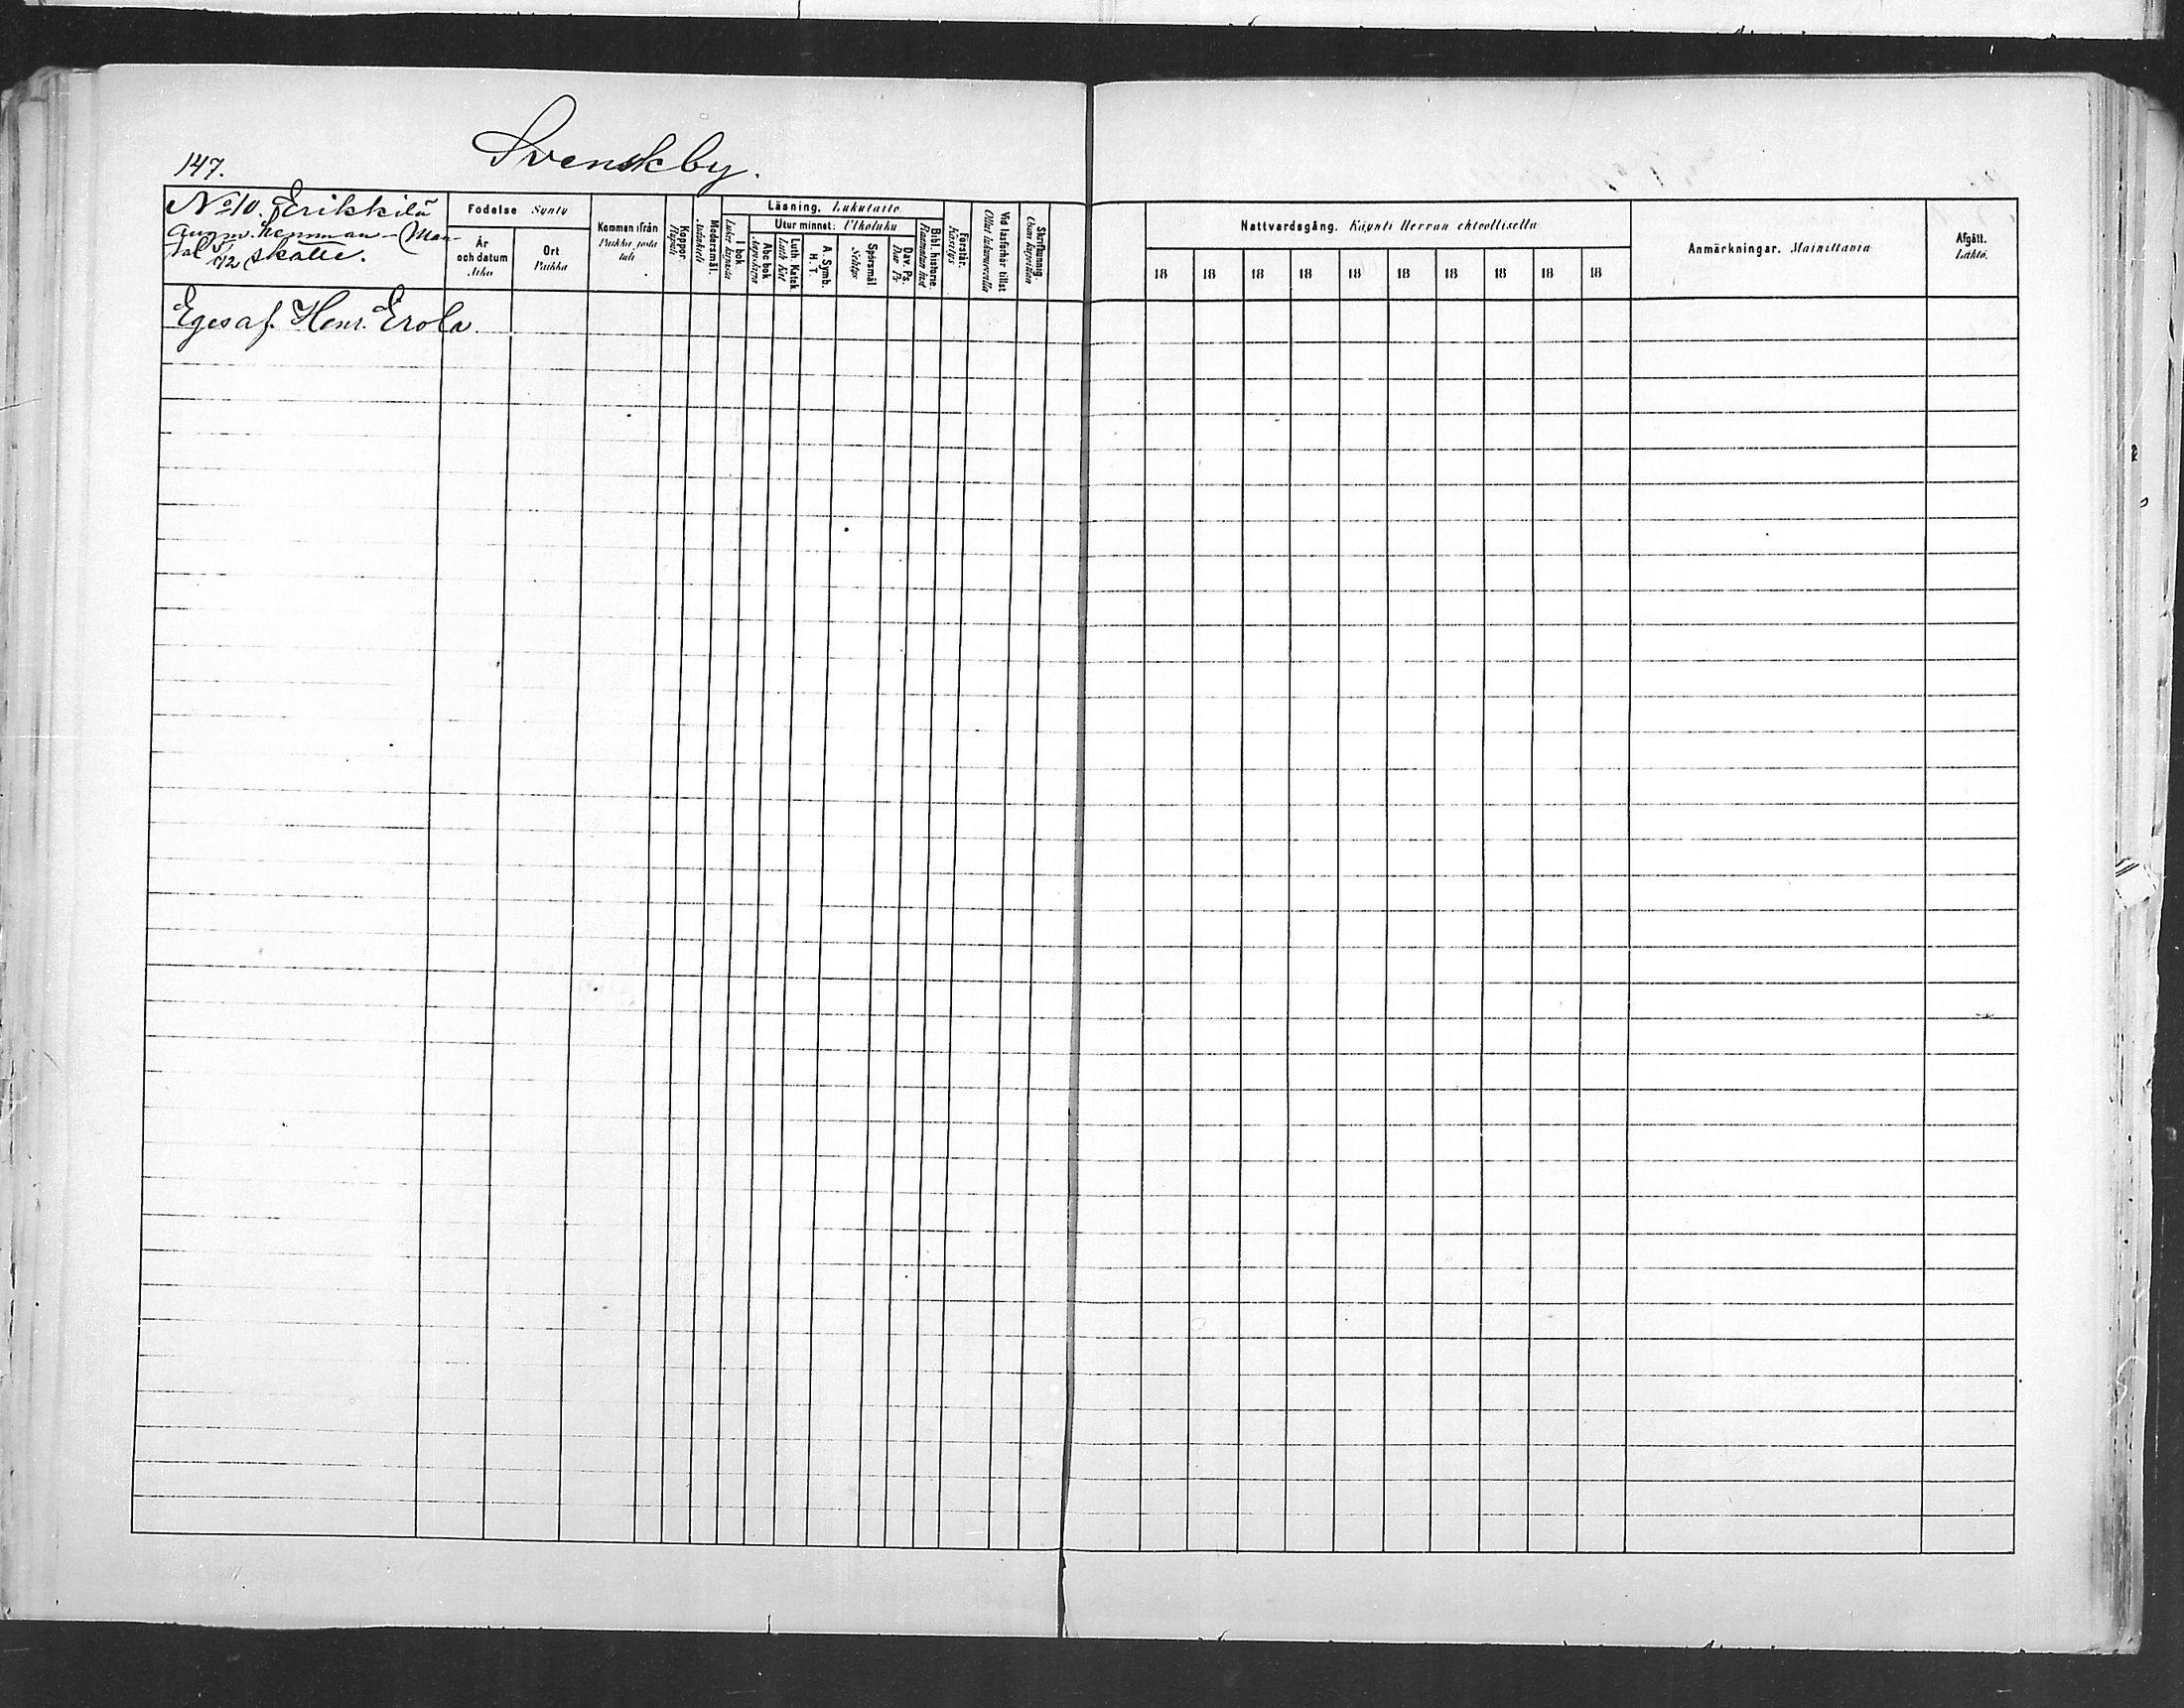 147.
Svenskby.
No 10. Erikkilä
augm. hemman - Man-
tal 5/12 skatte.
Födelse Synty
År och datum Aika
Ort Paikka
Kommen ifrån Paikka, josta tuli
Koppor. Rupuli
Modersmål. Äidinkieli
Läsning. Lukutaito
I bok. Lukee kirjasta
Utur minnet: Ulkoluku
Abc bok. Aapiskirja
Luth. Katek Luth. Kat
A. Symb. H. T.
Spörsmål Selitys
Dav. Ps. Dav Ps.
Bibl. historie.
Förstår. Käsitys
Vid läsförhör tillst Ollut lukuvuorolla
Skriftkunnig. Osaa kirjoittaa
Nattvardsgång. Käynti Herran ehtoollisella
18 18 18 18 18 18 18 18 18 18
Anmärkningar. Mainittavia
Afgått. Lähtö.
Eges af. Henr. Erola.